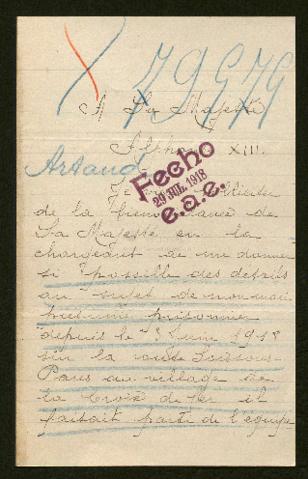 79979
A Sa Majesté
Alphonse XIII.
Artaud
Fecho
29 JUL. 1918
e.a.e.
Je viens solliciter
de la bienveillance de
Sa Majesté en la
chargeant de me donner
si possible des details
au sujet de mon mari
prisonnier
depuis le 1918
sur la route Soissons
Paris au village de
la Croix de fer il
faisait partie de l'equipe